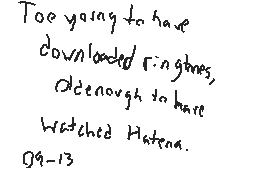 Too yoing to have
downloaded ringtones,
old enough to have
watched Hatena.
09-13